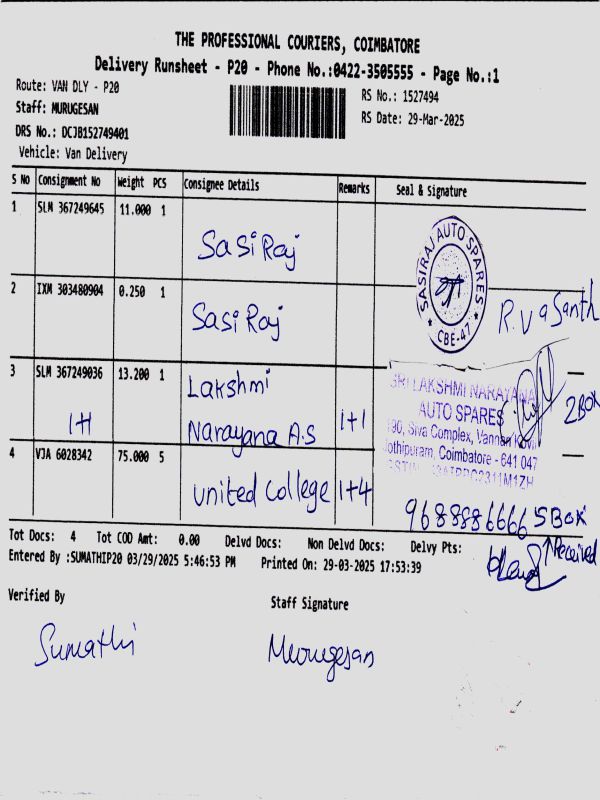 THE PROFESSIONAL COURIERS, COIMBATORE
Delivery Runsheet - P20 - Phone No.:0422-3505555 - Page No.:1
Route: VAN DLY - P20
RS No.: 1527494
Staff: MURUGESAN
RS Date: 29-Mar-2025
DRS No.: DCJB152749401
Vehicle: Van Delivery
S No Consignment No Weight PCS Consignee Details Remarks Seal & Signature
1 SLM 367249645 11.000 1
Sasi Raj
SASIRAJ AUTO SPARES
CBE-47
2 IXM 303480904 0.250 1
Sasi Raj
R. Vasanth
3 SLM 367249036 13.200 1
Lakshmi
Narayana A.S
1+1
1+1
SRI LAKSHMI NARAYANA
AUTO SPARES
190, Siva Complex, Vannan Kovil
Jothipuram, Coimbatore - 641 047
2 BOX
4 VJA 6028342 75.000 5
united College 1+4
9688886666 5 BOX
Received
Tot Docs: 4 Tot COD Amt: 0.00 Delvd Docs: Non Delvd Docs: Delvy Pts:
Entered By :SUMATHIP20 03/29/2025 5:46:53 PM Printed On: 29-03-2025 17:53:39
Verified By
Staff Signature
Sumathi
Murugesan